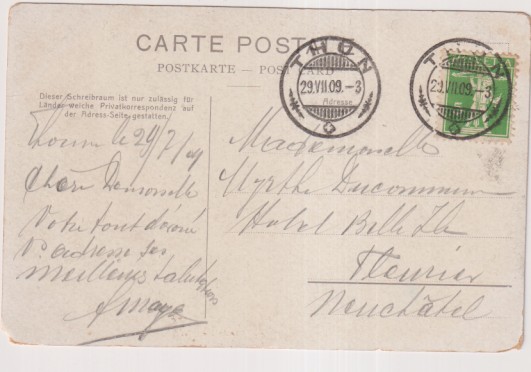 CARTE POSTALE
POSTKARTE — POST CARD
Dieser Schreibraum ist nur zulässig für
Länder welche Privatkorrespondenz auf
der Adress-Seite gestatten.
Adresse
THUN
29.VII.09.-3
THUN
29.VII.09.-3
Thoune le 29/7/09
Chère Demoiselle
Votre tout dévoué
Vs adresse ses
meilleures salutations
Mademoiselle
Myrthe Ducommun
Hotel Belle Ile
Fleurier
Neuchâtel